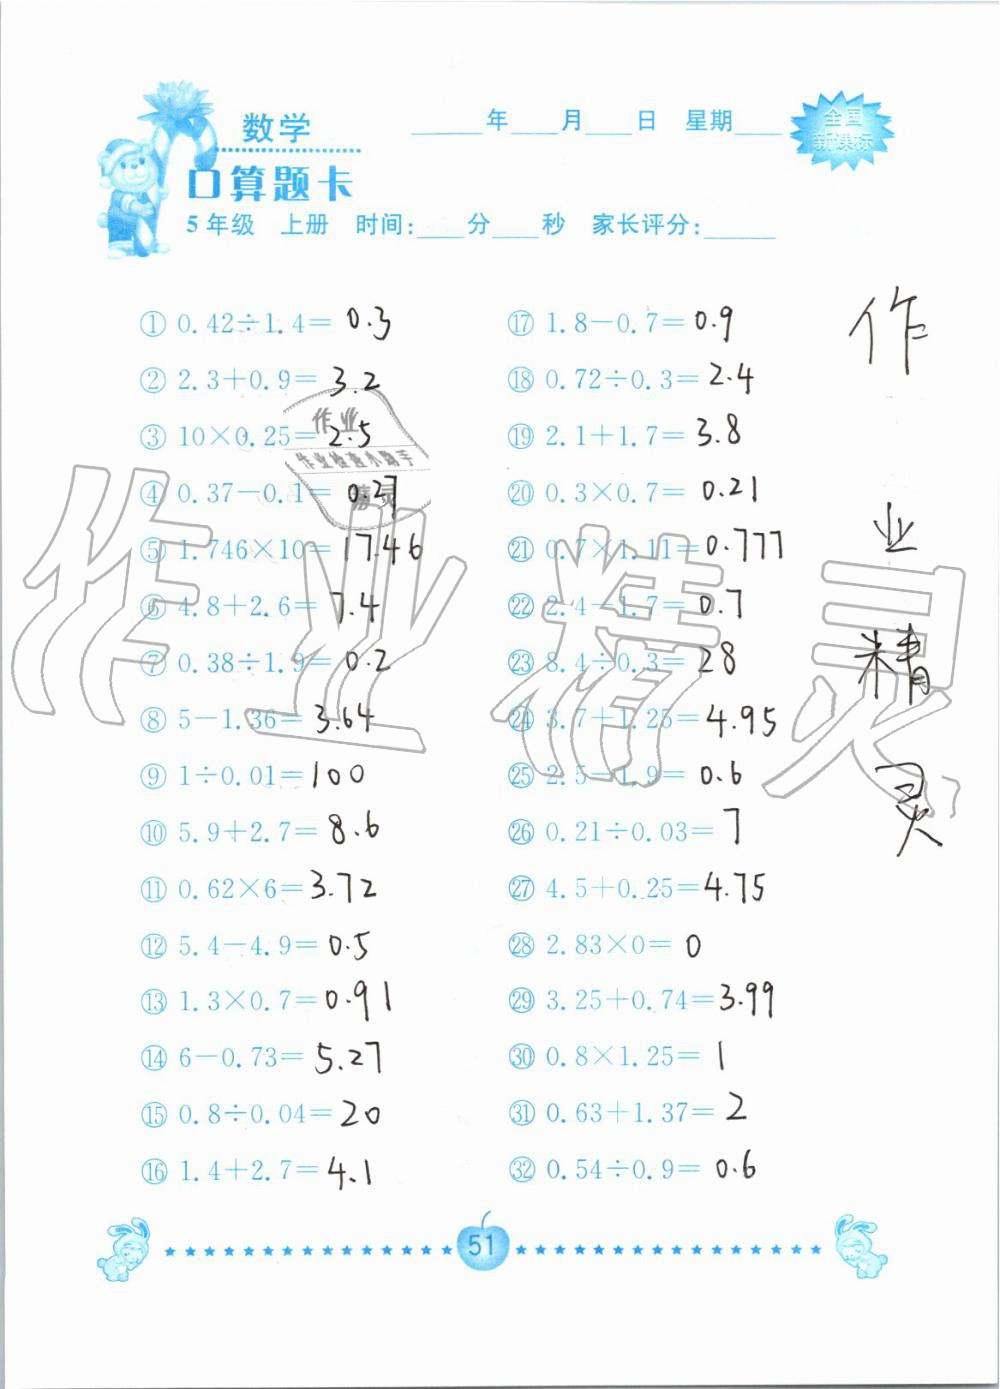 数学
口算题卡
____年____月____日 星期____
全国
新课标
5年级 上册 时间:____分____秒 家长评分:______
① 0.42÷1.4= 0.3
② 2.3+0.9= 3.2
③ 10×0.25= 2.5
④ 0.37-0.1= 0.27
⑤ 1.746×10= 17.46
⑥ 4.8+2.6= 7.4
⑦ 0.38÷1.9= 0.2
⑧ 5-1.36= 3.64
⑨ 1÷0.01= 100
⑩ 5.9+2.7= 8.6
⑪ 0.62×6= 3.72
⑫ 5.4-4.9= 0.5
⑬ 1.3×0.7= 0.91
⑭ 6-0.73= 5.27
⑮ 0.8÷0.04= 20
⑯ 1.4+2.7= 4.1
⑰ 1.8-0.7= 0.9
⑱ 0.72÷0.3= 2.4
⑲ 2.1+1.7= 3.8
⑳ 0.3×0.7= 0.21
㉑ 0.7×1.11= 0.777
㉒ 2.4-1.7= 0.7
㉓ 8.4÷0.3= 28
㉔ 3.7+1.25= 4.95
㉕ 2.5-1.9= 0.6
㉖ 0.21÷0.03= 7
㉗ 4.5+0.25= 4.75
㉘ 2.83×0= 0
㉙ 3.25+0.74= 3.99
㉚ 0.8×1.25= 1
㉛ 0.63+1.37= 2
㉜ 0.54÷0.9= 0.6
作
业
精
灵
作业
作业检查小助手
精灵
作业精灵
51